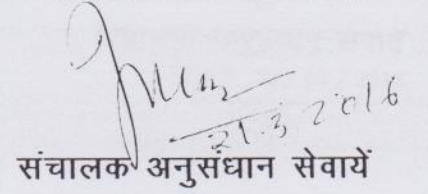 21.3.2016
संचालक अनुसंधान सेवायें